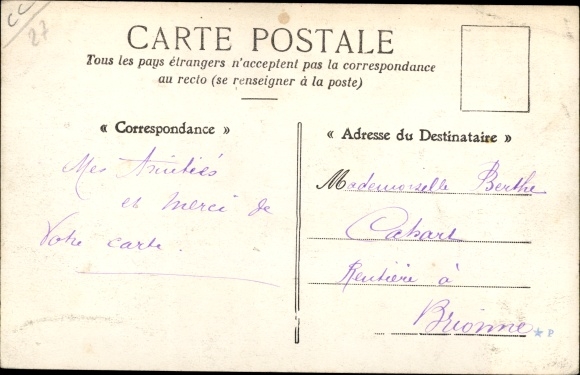 CC
27
CARTE POSTALE
Tous les pays étrangers n'acceptent pas la correspondance
au recto (se renseigner à la poste)
« Correspondance »
Mes Amitiés
et merci de
Votre carte.
« Adresse du Destinataire »
Mademoiselle Berthe
Cabart
Rentière à
Brionne
* P